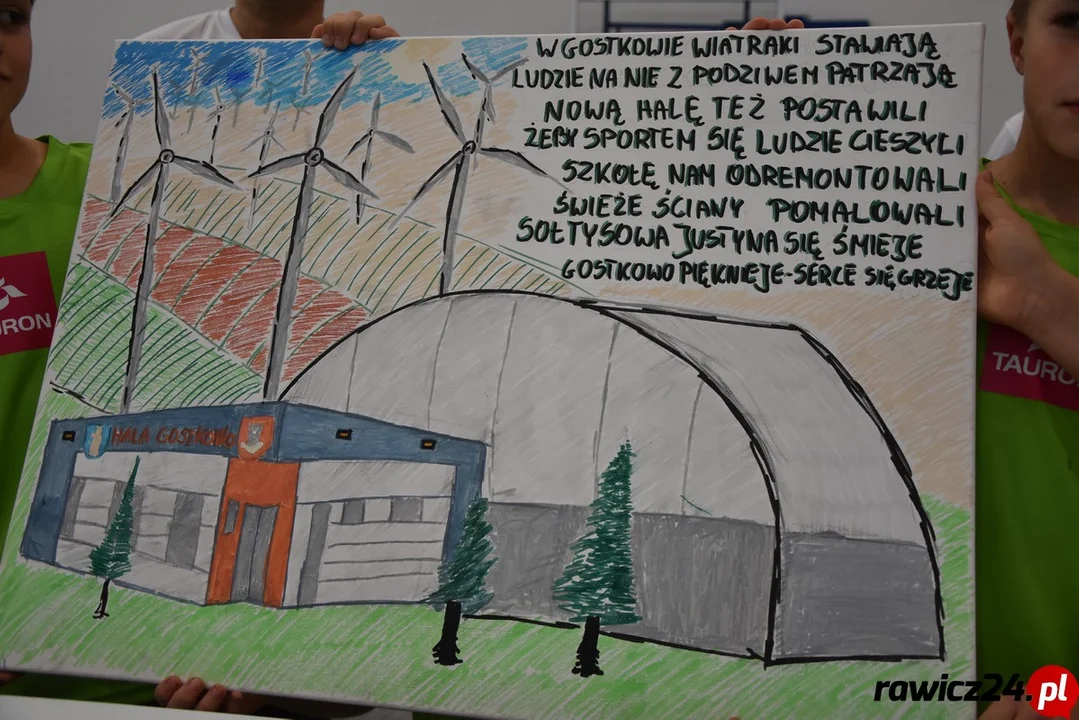 W GOSTKOWIE WIATRAKI STAWIAJĄ
LUDZIE NA NIE Z PODZIWEM PATRZAJĄ
NOWĄ HALĘ TEŻ POSTAWILI
ŻEBY SPORTEM SIĘ LUDZIE CIESZYLI
SZKOŁĘ NAM ODREMONTOWALI
ŚWIEŻE ŚCIANY POMALOWALI
SOŁTYSOWA JUSTYNA SIĘ ŚMIEJE
GOSTKOWO PIĘKNIEJE-SERCE SIĘ GRZEJE
HALA GOSTKOWO
URON
TAURO
rawicz24.pl